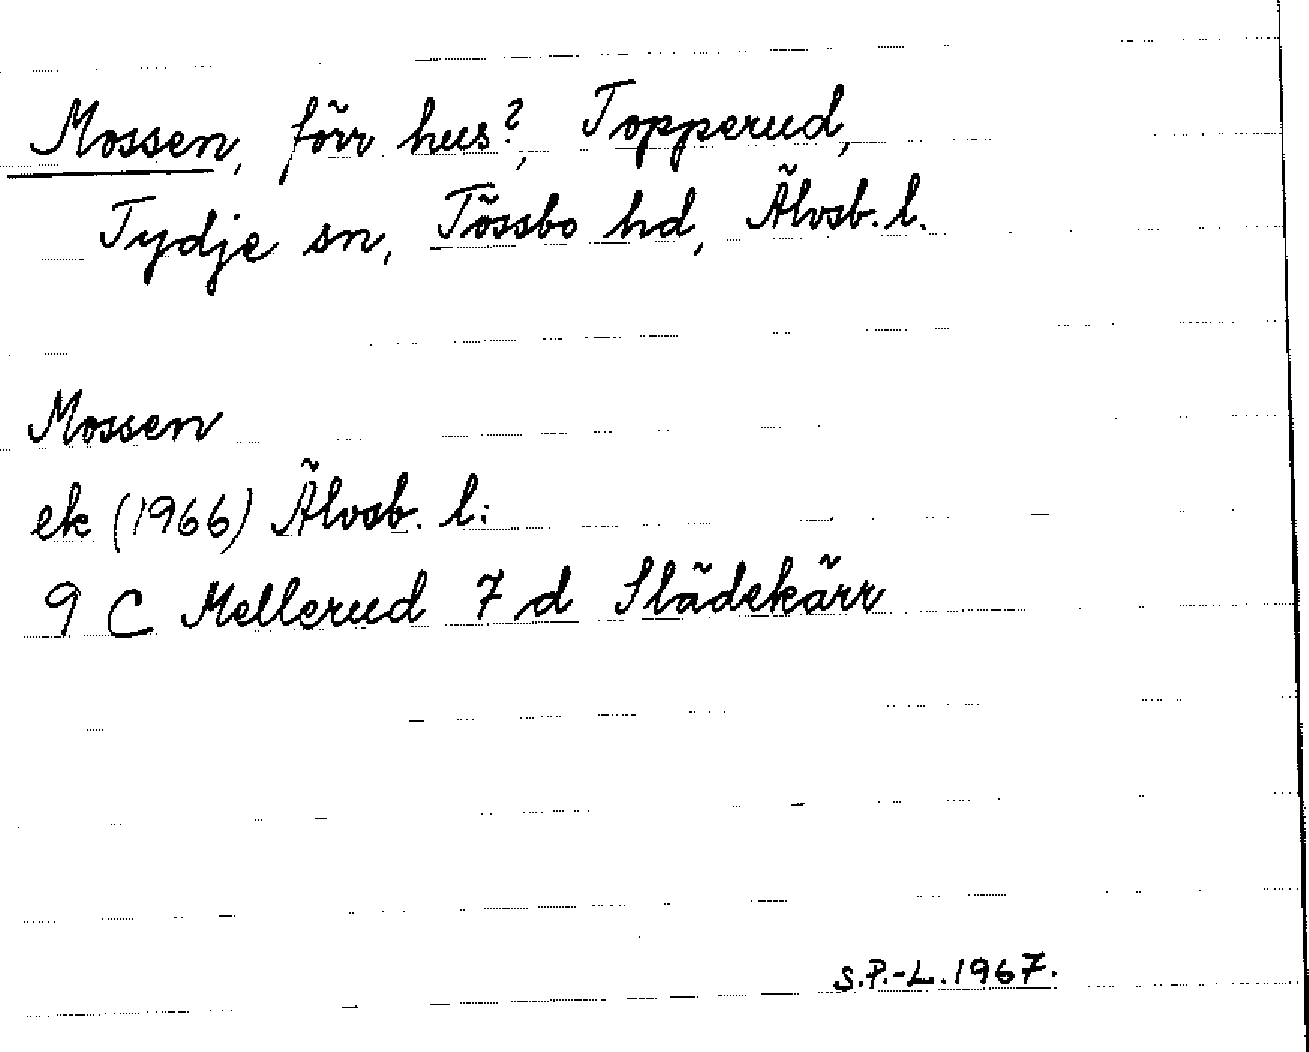 Mossen, förr hus?, Topperud,
Tydje sn, Tössbo hd, Älvsb. l.
Mossen
ek (1966) Älvsb. l:
9 C Mellerud 7 d Slädekärr
S.P.-L. 1967.